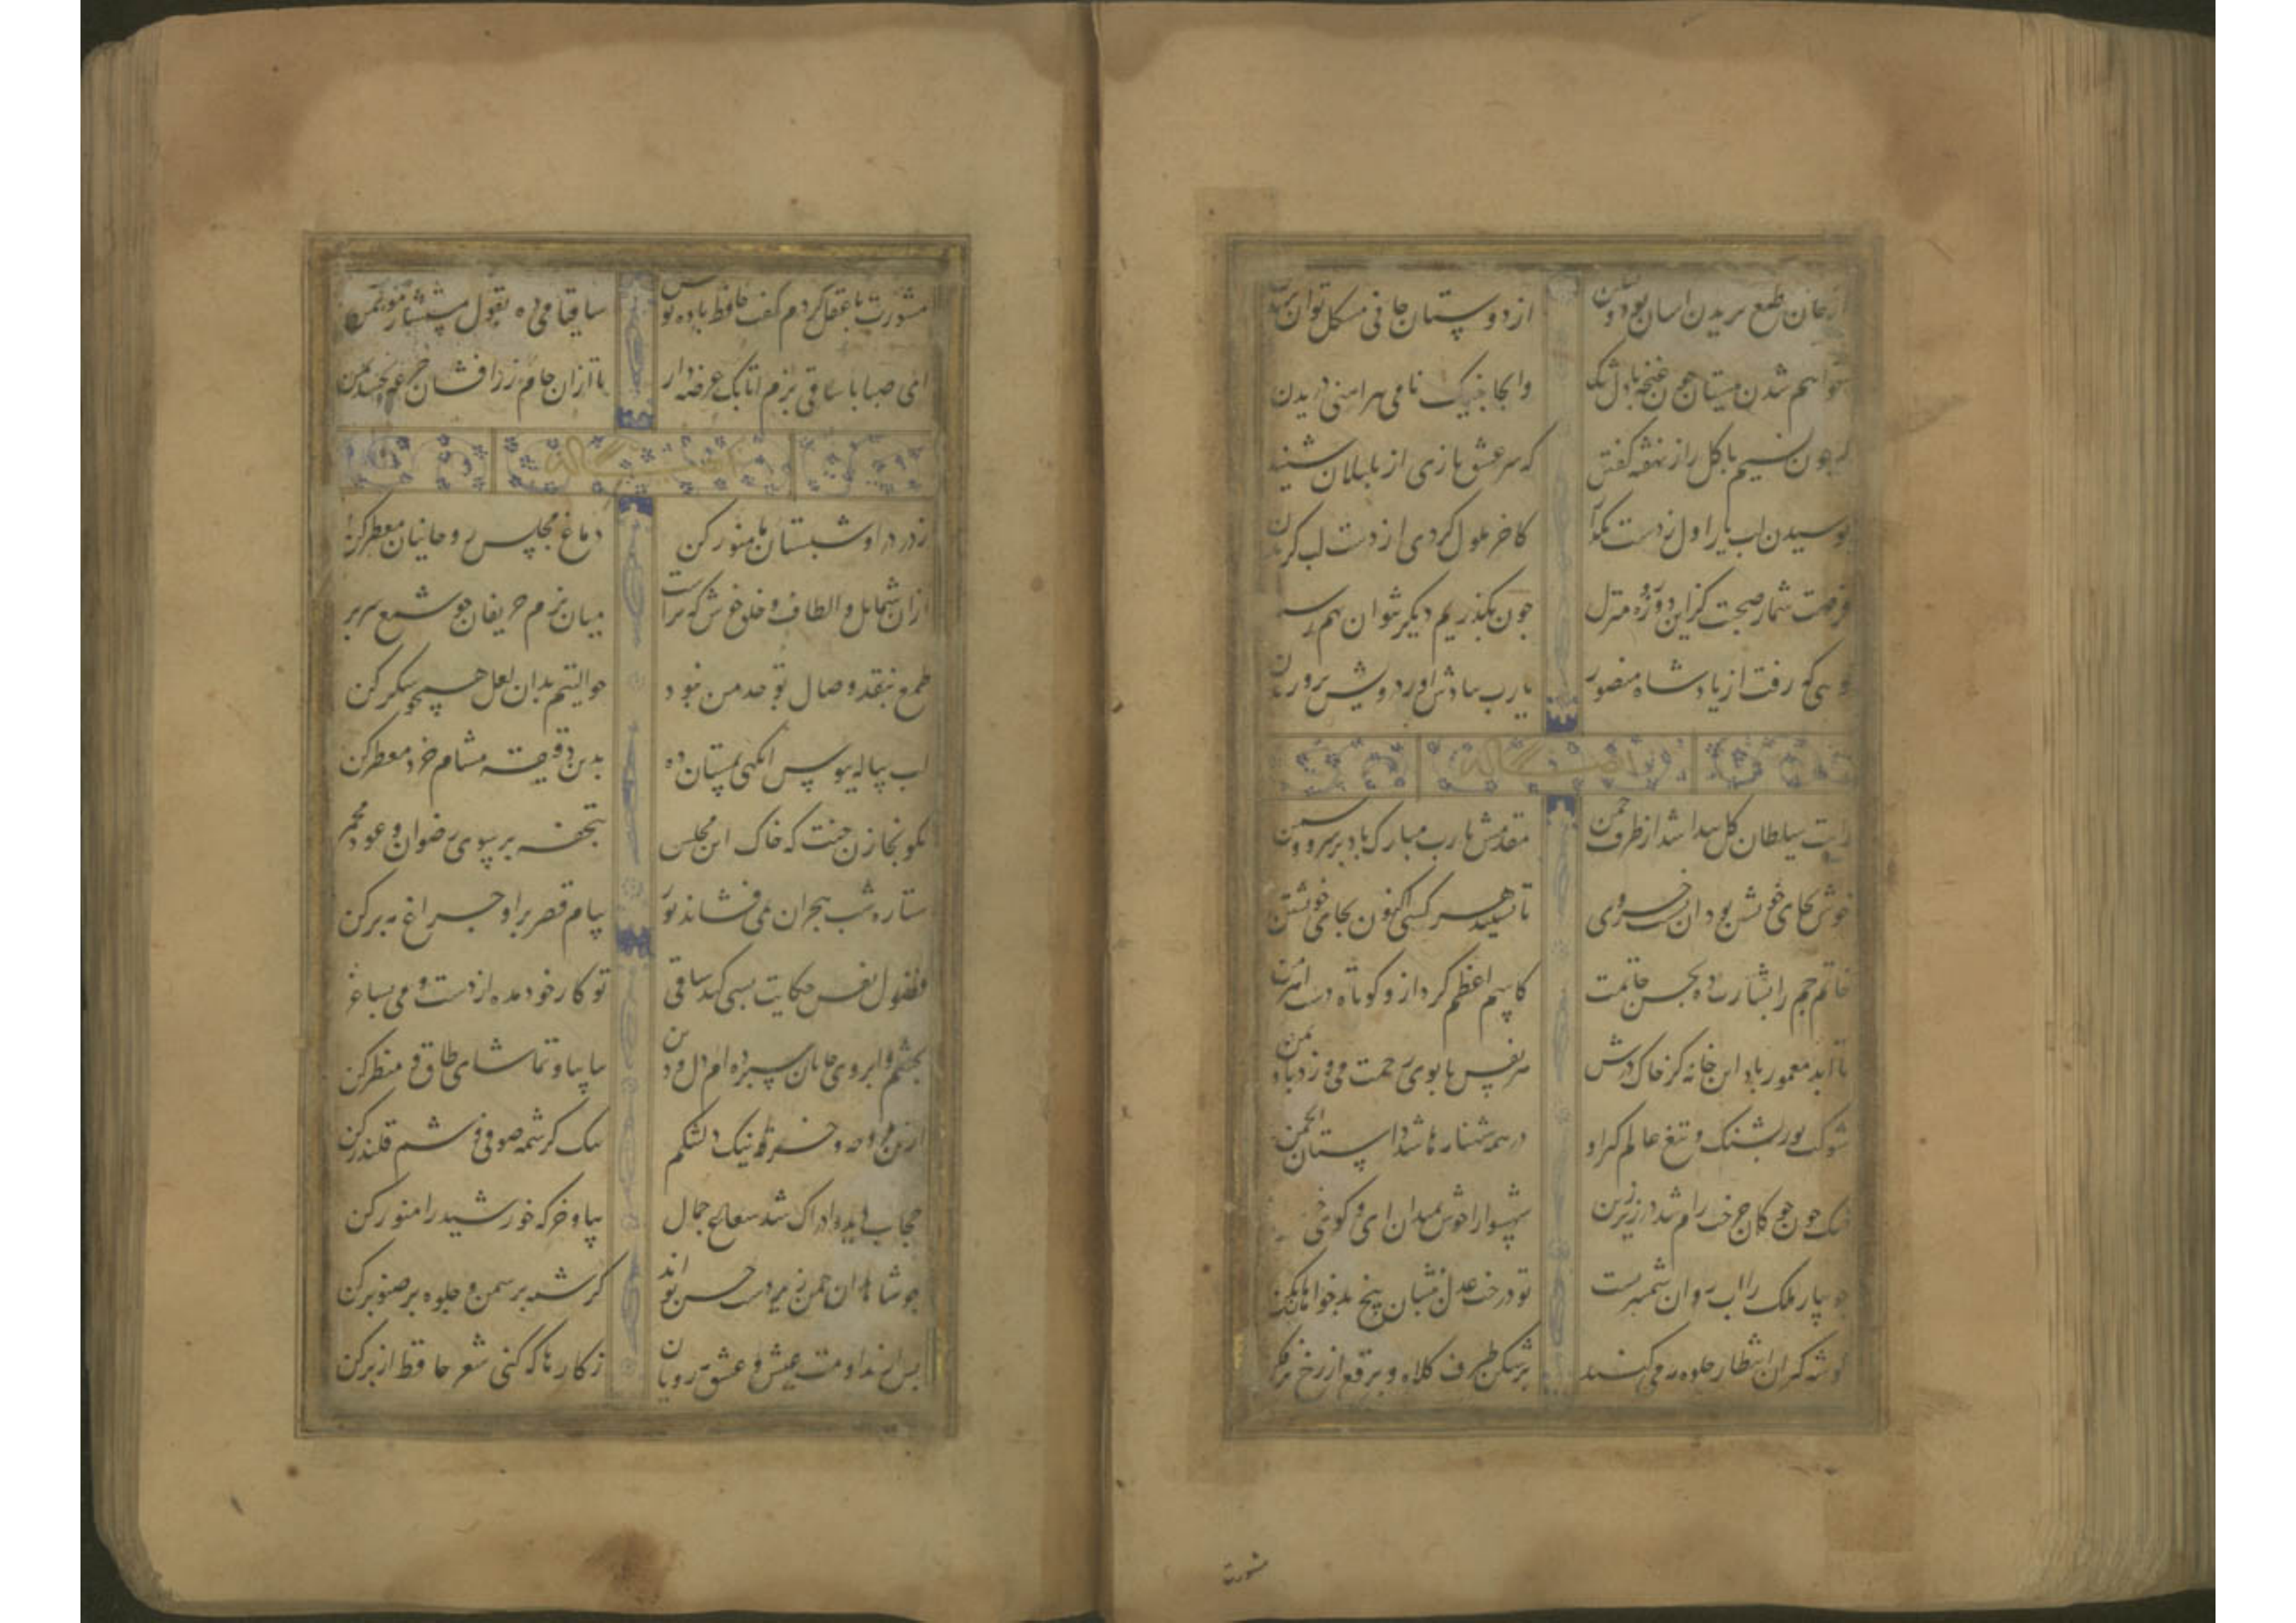 از جان طمع بریدن اسان بود ولیکن از دوستان جانی مشکل توان برید
خواهم شدن ببستان چون غنچه با دل تنک وانجا بنیک نامی پیراهنی دریدن
که چون نسیم با کل راز نهفته کفتن که سر عشق بازی از بلبلان شنید
بوسیدن لب یار اول ز دست مکذار کاخر ملول کردی از دست لب کزیدن
فرصت شمار صحبت کز این دوروزه منزل چون بکذریم دیکر نتوان بهم رسید
کویی که رفت از یاد شاه منصور یا رب بیادش اور درویش پروریدن
ایضا له
رایت سلطان کل پیدا شد از طرف چمن مقدمش یا رب مبارک باد بر سرو و سمن
خوش بجای خویشتن بود ان خسروی تا نشیند هر کسی اکنون بجای خویشتن
خاتم جم را بشارت ده بحسن خاتمت کاسم اعظم کرد ازو کوتاه دست اهرمن
تا ابد معمور باد این خانه کز خاک درش هر نفس با بوی رحمت می وزد باد یمن
شوکت پور پشنک و تیغ عالم کیر او در همه شهنامه ها شد داستان انجمن
خنک چوکانی چرخت رام شد در زیر زین شهسوارا خوش بمیدان امدی کویی
جویبار ملک را اب روان شمشیر تست تو درخت عدل بنشان بیخ بدخواهان بکن
کوشه کیران انتظار جلوه می کنند برشکن طرف کلاه و برقع از رخ برفکن
مشورت
مشورت با عقل کردم کفت حافظ باده نوش ساقیا می ده بقول مستشار موتمن
ای صبا با ساقی بزم اتابک عرضه دار تا از ان جام زرافشان جرعه بخشد بمن
ایضا له
ز در درا و شبستان ما منور کن دماغ مجلس روحانیان معطر کن
ازان شمایل و الطاف و خلق خوش که تراست میان بزم حریفان چو شمع سر بر
طمع بنقد وصال تو حد من نبود حوالتم بدان لعل همچو شکر کن
لب پیاله ببوس انکهی بمستان ده بدین دقیقه مشام خرد معطر کن
بکو بخازن جنت که خاک این مجلس بتحفه بر بسوی رضوان و عود مجمر
ستاره شب هجران نمی فشاند نور ببام قصر برا و چراغ مه بر کن
فضول نفس حکایت بسی کند ساقی تو کار خود مده از دست و می بساغر
بچشم و ابروی جانان سپرده ام دل و دین بیا بیا و تماشای طاق و منظر کن
ازین مزوجه و خرقه نیک دلتنکم بیک کرشمه صوفی وشم قلندر کن
حجاب دیده ادراک شد شعاع جمال بیا و خرکه خورشید را منور کن
چو شاهدان چمن زیردست حسن تو اند کرشمه بر سمن و جلوه بر صنوبر کن
پس از مداومت عیش و عشق مه رویان ز کارها که کنی شعر حافظ از بر کن